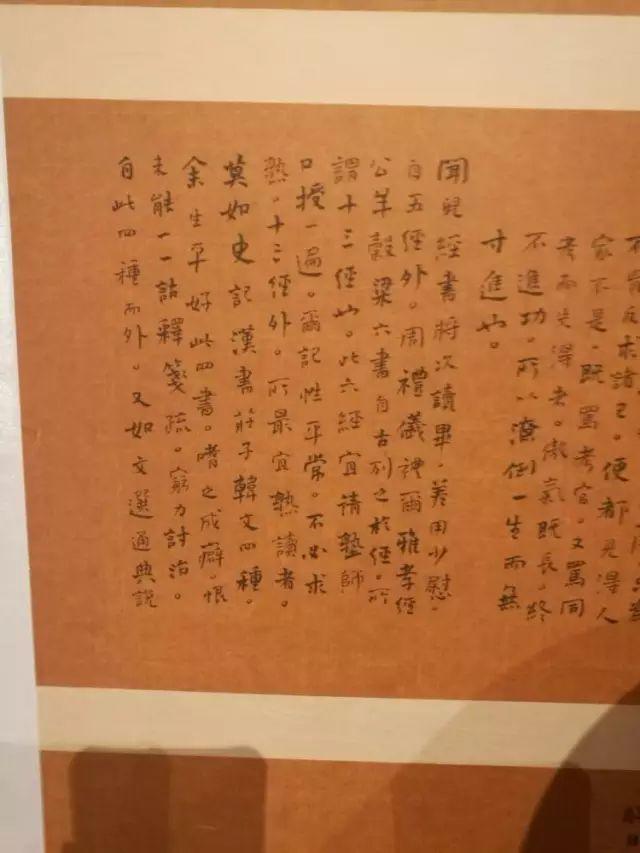 不肯反求諸己。便都見得人
家不是。既罵考官。又罵同
考而先得者。傲氣既長。終
不進功。所以潦倒一生而無
寸進也。
聞兒經書將次讀畢。差用少慰。
自五經外。周禮儀禮爾雅孝經
公羊穀梁六書自古列之於經。所
謂十三經也。此六經宜請塾師
口授一遍。爾記性平常。不必求
熟。十三經外。所最宜熟讀者。
莫如史記漢書莊子韓文四種。
余生平好此四書。嗜之成癖。恨
未能一一詁釋箋疏。窮力討治。
自此四種而外。又如文選通典說